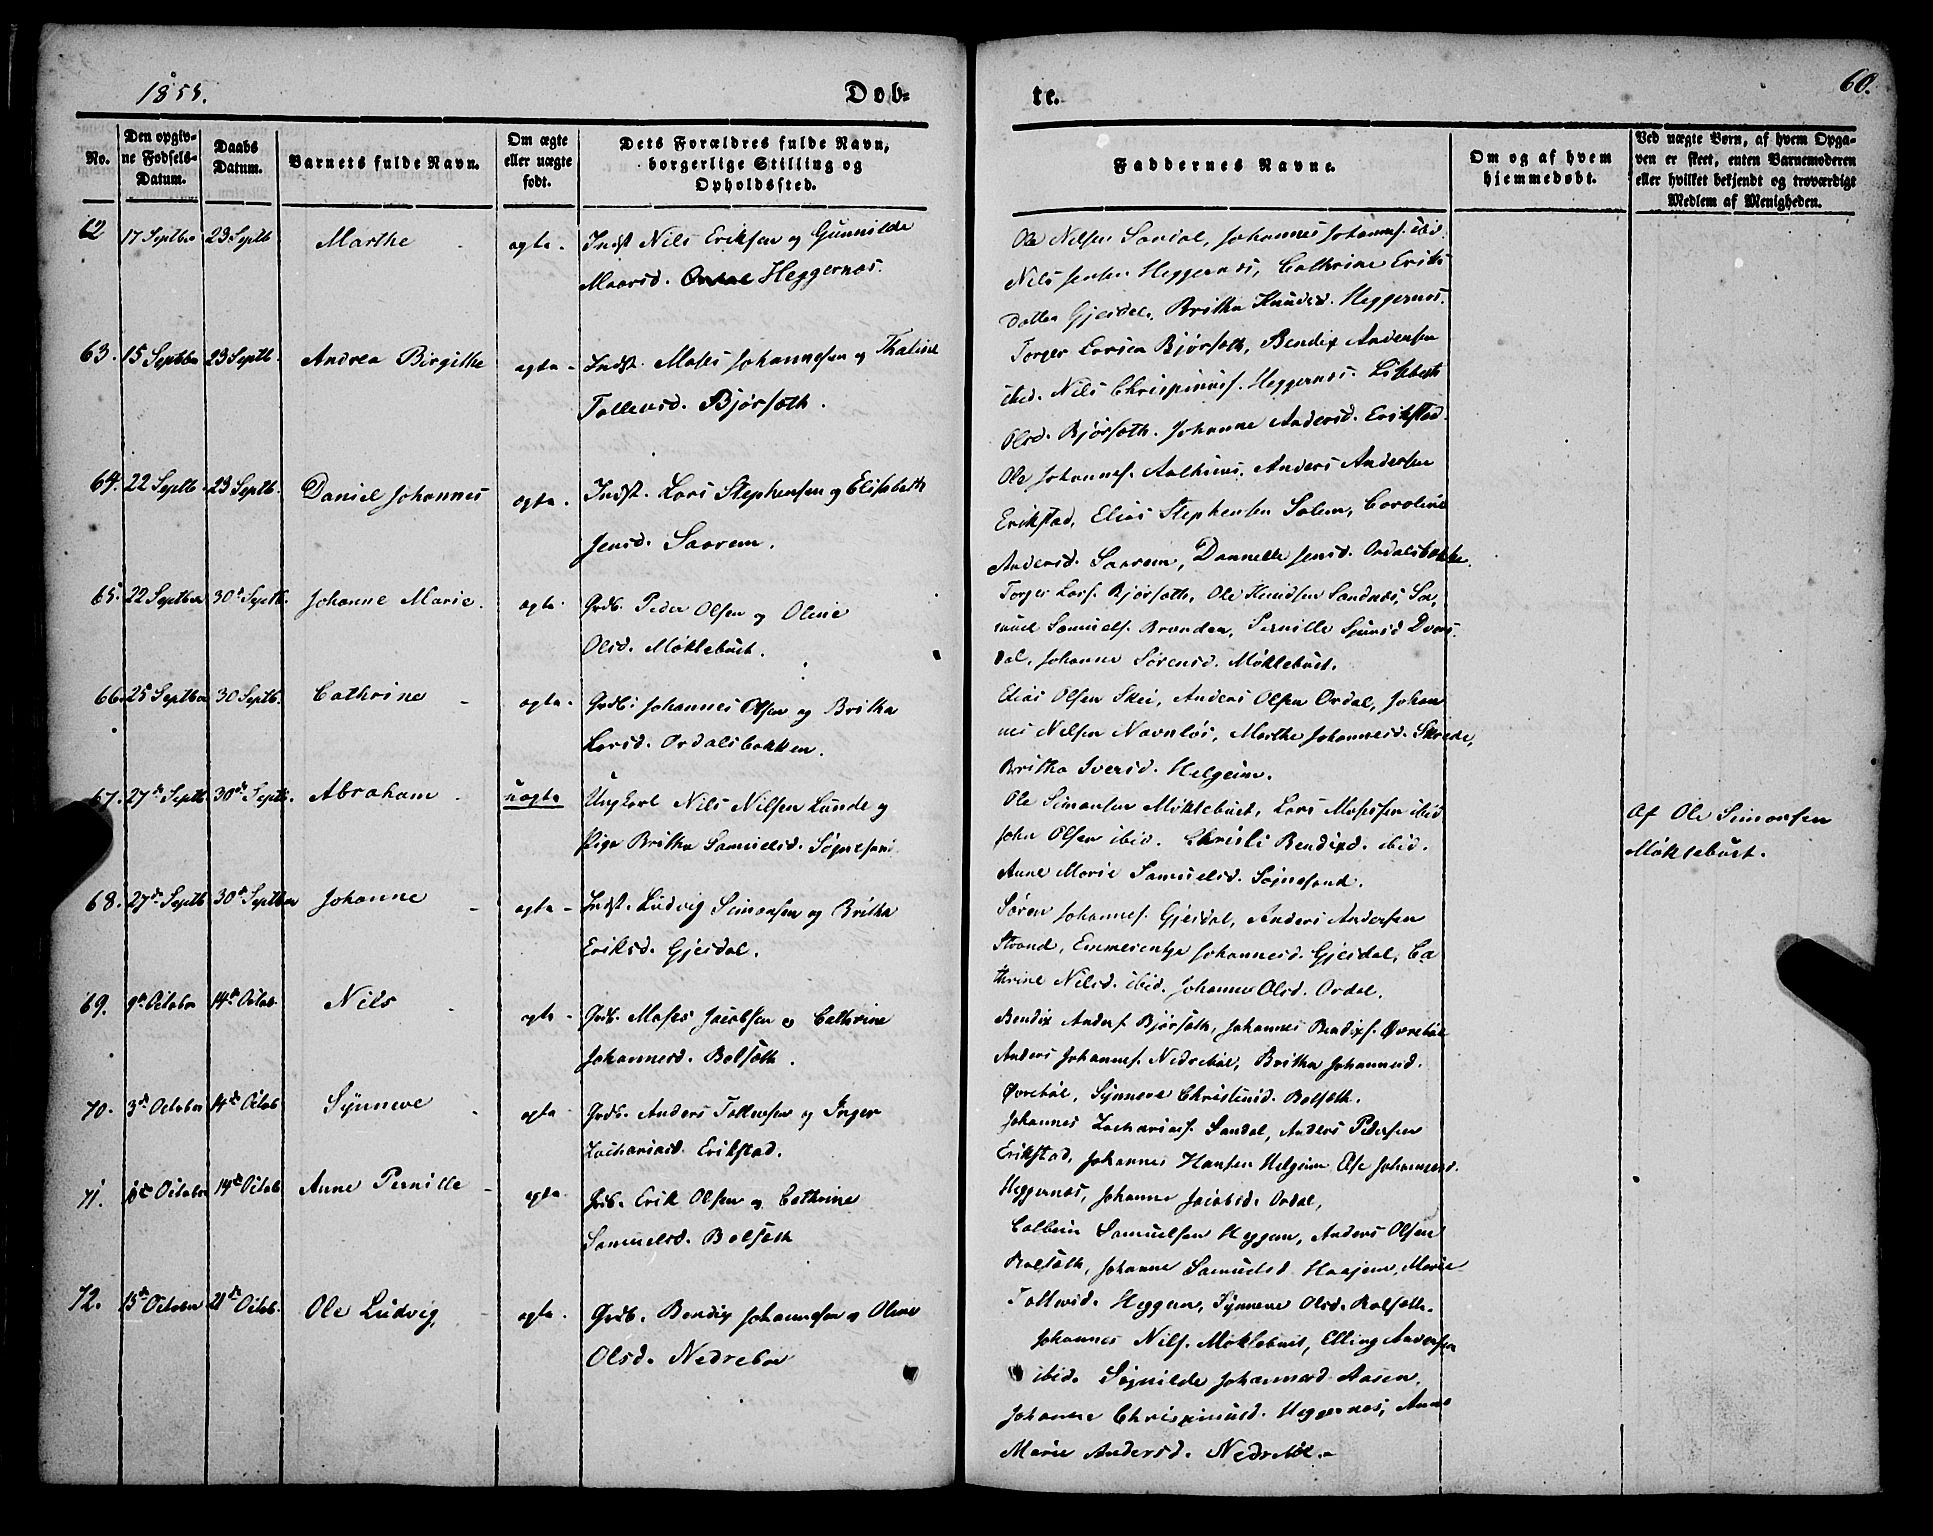 1855.
Døb-
te.
60.
No.
Den opgiv-
ne Fødsels-
Datum.
Daabs
Datum.
Barnets fulde Navn.
Om ægte
eller uægte
født.
Dets Forældres fulde Navn,
borgerlige Stilling og
Opholdssted.
Faddernes Navne.
Om og af hvem
hjemmedøbt.
Ved uægte Børn, af hvem Opga-
ven er skeet, enten Barnemoderen
eller hvilket bekjendt og troværdigt
Medlem af Menigheden.
62 17 Septbr 23 Septb Marthe ægte. Indst Nils Eriksen og Gunnilde
Moorsd. Heggernæs.
Ole Nilsen Sandal, Johannes Johannes. ibid
Nils Jensen Heggernæs, Cathrine Eriks
datter Gjeidal, Britha Knudsd. Heggernæs.
63. 15 Septbr 23 Septb. Andrea Birgithe ægte. Indst. Moses Johannesen og Thaline
Tollevsd. Bjørsæth.
Torger Larsen Bjørsæth, Bendix Andersen
ibid. Nils Chrispinus. Heggernæs. Lisbeth
Olsd. Bjørsæth. Johanne Andersd. Erikstad.
64. 22 Septb. 23 Septb. Daniel Johannes ægte. Indst. Lars Stephensen og Elisabeth
Jensd. Saarem.
Ole Johannes. Aalhuus. Anders Andersen
Erikstad, Elias Stephensen Solem, Caroline
Andersd. Saarem, Dannelle Jensd. Ordalsbakke.
65. 22 Septber 30te Septb. Johanne Marie. ægte. Grdb. Peder Olsen og Oline
Olsd. Møklebust.
Torger Lars. Bjørsæth, Ole Knudsen Sandnæs, Sa-
muel Samuels. Branden, Pernille Sjursd Dvers-
dal, Johanne Sørensd. Møklebust.
66. 25 Septber 30 Septb. Cathrine ægte. Grdb: Johannes Olsen og Britha
Larsd. Ordalsbakken.
Elias Olsen Skei, Anders Olsen Ordal, Johan
nes Nilsen Navnløs, Marthe Johannesd. Skrede,
Britha Iversd. Helgeim.
67. 27de Septb. 30te Septb. Abraham uægte Ungkarl Nils Nilsen Lunde og
Pige Britha Samuelsd. Søgnesand.
Ole Simonsen Møklebust, Lars Mosessen ibid
John Olsen ibid. Christi Bendixd. ibid.
Anne Marie Samuelsd. Søgnesand.
Af Ole Simonsen
Møklebust.
68. 27de Septb 30te Septber Johanne ægte Indst. Ludvig Simonsen og Britha
Eriksd. Gjeidal.
Søren Johannes. Gjeidal, Anders Andersen
Strand, Emmerentze Johannesd. Gjeidal, Ca
thrine Nilsd. ibid. Johanne Olsd. Ordal.
69. 9de October 14de Octob Nils ægte Grdb. Moses Jacobsen og Cathrine
Johannesd. Bolsæth.
Bendix Anders. Bjørsæth, Johannes Bendixs. Øvrebøe
Anders Johannes. Nedrebøe, Britha Johannesd.
Øvrebøe, Synneve Christensd. Bolsæth.
70. 3de October 14de Octob Synneve ægte Grdb. Anders Tollevsen og Inger
Zachariasd. Erikstad.
Johannes Zacharias. Sandal, Anders Pedersen
Erikstad, Johannes Hansen Helgeim, Johannesd.
Heggernæs, Johanne Jacobsd. Ordal,
71. October 14de Octob Anne Pernille ægte Grdb. Erik Olsen og Cathrine
Samuelsd. Bolsæth
Colbein Samuelsen Heggem, Anders Olsen
Bolsæth, Johanne Samuelsd. Marie
Tollevsd. Heggem, Synneve Olsd. Bolsæth.
72. 15de October 21de Octob. Ole Ludvig, ægte. Grdb. Bendix Johannesen og Oline
Olsd. Nedrebøe
Johannes Nils. Møklebust, Elling Andersen
ibid. Johannesd. Aasen,
Johanne Chrispinusd. Heggernæs, Anne
Marie Andersd. Nedrebøe.